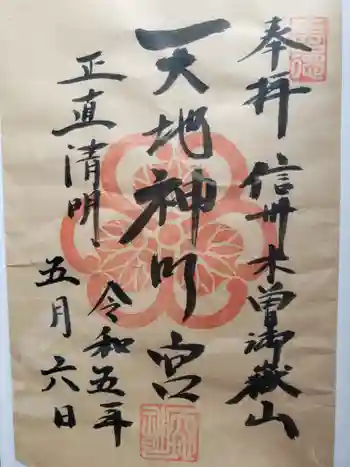 奉拝 信州木曽御嶽山
天地神明宮
正直清明
令和五年
五月六日